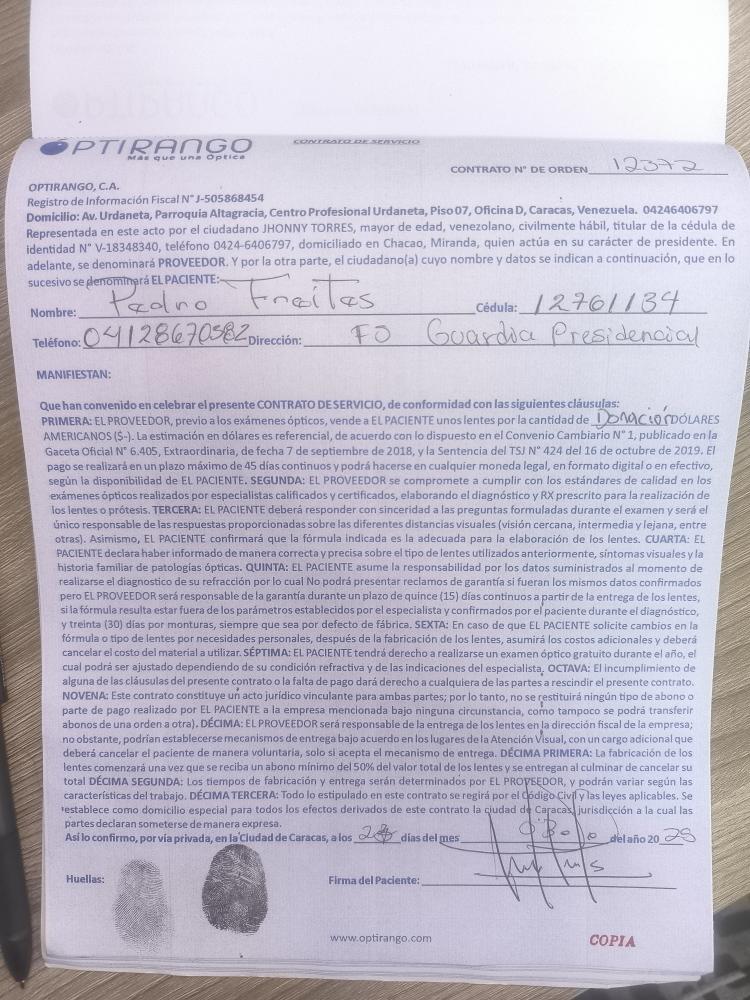 OPTIRANGO
Más que una Óptica
CONTRATO DE SERVICIO
CONTRATO N° DE ORDEN 12372
OPTIRANGO, C.A.
Registro de Información Fiscal N° J-505868454
Domicilio: Av. Urdaneta, Parroquia Altagracia, Centro Profesional Urdaneta, Piso 07, Oficina D, Caracas, Venezuela. 04246406797
Representada en este acto por el ciudadano JHONNY TORRES, mayor de edad, venezolano, civilmente hábil, titular de la cédula de
identidad N° V-18348340, teléfono 0424-6406797, domiciliado en Chacao, Miranda, quien actúa en su carácter de presidente. En
adelante, se denominará PROVEEDOR. Y por la otra parte, el ciudadano(a) cuyo nombre y datos se indican a continuación, que en lo
sucesivo se denominará EL PACIENTE:
Nombre: Pedro Freitas Cédula: 12761134
Teléfono: 04128670582 Dirección: FO Guardia Presidencial
MANIFIESTAN:
Que han convenido en celebrar el presente CONTRATO DE SERVICIO, de conformidad con las siguientes cláusulas:
PRIMERA: EL PROVEEDOR, previo a los exámenes ópticos, vende a EL PACIENTE unos lentes por la cantidad de Donación DÓLARES
AMERICANOS ($-). La estimación en dólares es referencial, de acuerdo con lo dispuesto en el Convenio Cambiario N° 1, publicado en la
Gaceta Oficial N° 6.405, Extraordinaria, de fecha 7 de septiembre de 2018, y la Sentencia del TSJ N° 424 del 16 de octubre de 2019. El
pago se realizará en un plazo máximo de 45 días continuos y podrá hacerse en cualquier moneda legal, en formato digital o en efectivo,
según la disponibilidad de EL PACIENTE. SEGUNDA: EL PROVEEDOR se compromete a cumplir con los estándares de calidad en los
exámenes ópticos realizados por especialistas calificados y certificados, elaborando el diagnóstico y RX prescrito para la realización de
los lentes o prótesis. TERCERA: EL PACIENTE deberá responder con sinceridad a las preguntas formuladas durante el examen y será el
único responsable de las respuestas proporcionadas sobre las diferentes distancias visuales (visión cercana, intermedia y lejana, entre
otras). Asimismo, EL PACIENTE confirmará que la fórmula indicada es la adecuada para la elaboración de los lentes. CUARTA: EL
PACIENTE declara haber informado de manera correcta y precisa sobre el tipo de lentes utilizados anteriormente, síntomas visuales y la
historia familiar de patologías ópticas. QUINTA: EL PACIENTE asume la responsabilidad por los datos suministrados al momento de
realizarse el diagnostico de su refracción por lo cual No podrá presentar reclamos de garantía si fueran los mismos datos confirmados
pero EL PROVEEDOR será responsable de la garantía durante un plazo de quince (15) días continuos a partir de la entrega de los lentes,
si la fórmula resulta estar fuera de los parámetros establecidos por el especialista y confirmados por el paciente durante el diagnóstico,
y treinta (30) días por monturas, siempre que sea por defecto de fábrica. SEXTA: En caso de que EL PACIENTE solicite cambios en la
fórmula o tipo de lentes por necesidades personales, después de la fabricación de los lentes, asumirá los costos adicionales y deberá
cancelar el costo del material a utilizar. SÉPTIMA: EL PACIENTE tendrá derecho a realizarse un examen óptico gratuito durante el año, el
cual podrá ser ajustado dependiendo de su condición refractiva y de las indicaciones del especialista. OCTAVA: El incumplimiento de
alguna de las cláusulas del presente contrato o la falta de pago dará derecho a cualquiera de las partes a rescindir el presente contrato.
NOVENA: Este contrato constituye un acto jurídico vinculante para ambas partes; por lo tanto, no se restituirá ningún tipo de abono o
parte de pago realizado por EL PACIENTE a la empresa mencionada bajo ninguna circunstancia, como tampoco se podrá transferir
abonos de una orden a otra). DÉCIMA: EL PROVEEDOR será responsable de la entrega de los lentes en la dirección fiscal de la empresa;
no obstante, podrían establecerse mecanismos de entrega bajo acuerdo en los lugares de la Atención Visual, con un cargo adicional que
deberá cancelar el paciente de manera voluntaria, solo si acepta el mecanismo de entrega. DÉCIMA PRIMERA: La fabricación de los
lentes comenzará una vez que se reciba un abono mínimo del 50% del valor total de los lentes y se entregan al culminar de cancelar su
total DÉCIMA SEGUNDA: Los tiempos de fabricación y entrega serán determinados por EL PROVEEDOR, y podrán variar según las
características del trabajo. DÉCIMA TERCERA: Todo lo estipulado en este contrato se regirá por el Código Civil y las leyes aplicables. Se
establece como domicilio especial para todos los efectos derivados de este contrato la ciudad de Caracas, jurisdicción a la cual las
partes declaran someterse de manera expresa.
Así lo confirmo, por vía privada, en la Ciudad de Caracas, a los días del mes del año 20 25
Huellas:
Firma del Paciente:
www.optirango.com
COPIA